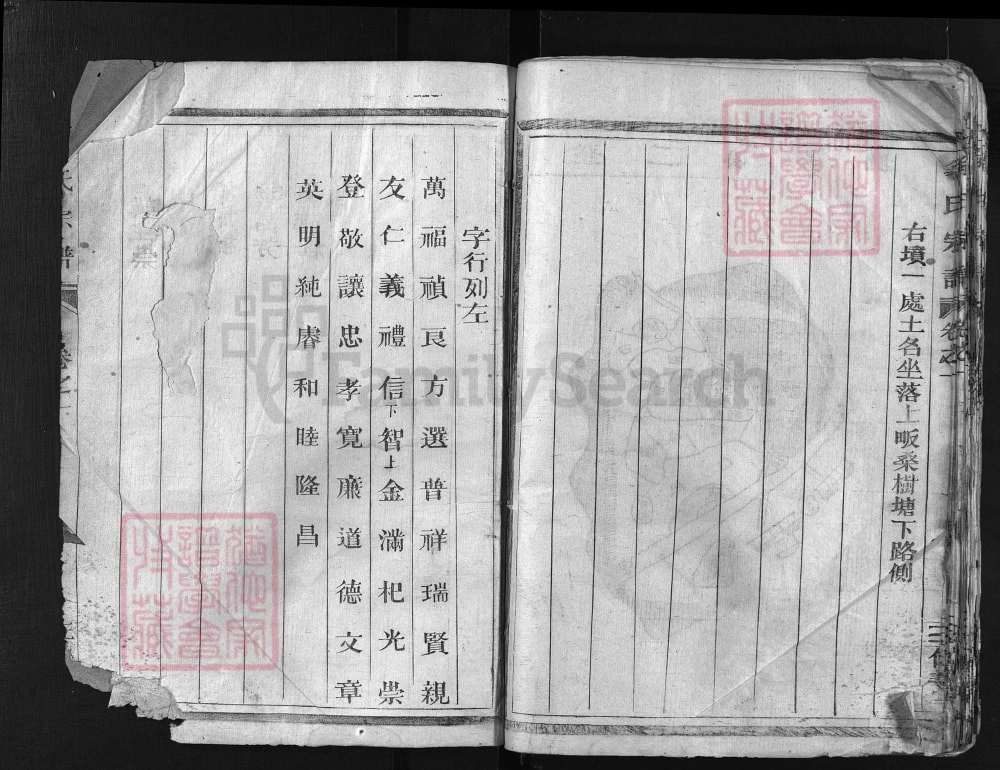 右墳一處土名坐落上畈桑樹塘下路側
氏宗譜
字行列左
萬福禎良方選普祥瑞賢親
友仁義禮信下智上金滿杞光崇
登敬讓忠孝寬廉道德文章
英明純睿和睦隆昌
FamilySearch